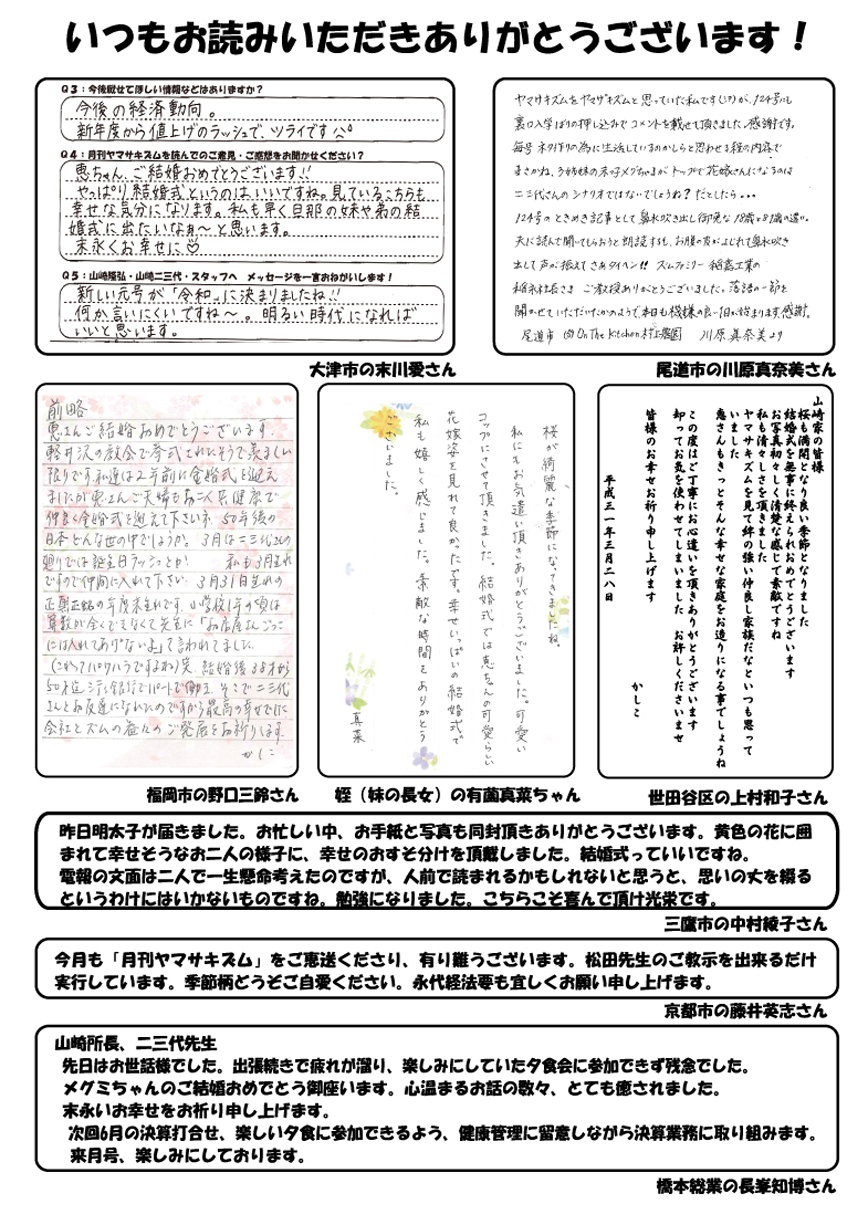 いつもお読みいただきありがとうございます！
Q3：今後載せてほしい情報などはありますか？
今後の経済動向。
新年度から値上げのラッシュで、ツライです
Q4：月刊ヤマサキズムを読んでのご意見・ご感想をお聞かせください？
恵ちゃん、ご結婚おめでとうございます!!
やっぱり結婚式というのはいいですね。見ているこちらも
幸せな気分になります。私も早く旦那の妹や弟の結
婚式に出たいなぁ〜と思います。
末永くお幸せに♡
Q5：山崎隆弘・山崎二三代・スタッフへ　メッセージを一言おねがいします！
新しい元号が「令和」に決まりましたね!!
何か言いにくいですね〜。明るい時代になれば
いいと思います。
大津市の末川愛さん
ヤマサキズムをヤマザキズムと思っていた私です(汗)が、124号にも
裏口入学ばりの押し込みでコメントを載せて頂きました。感謝です。
毎号ネタ作りの為に生活しているのかしらと思わせる程の内容で
まさかね、3姉妹の末っ子メグちゃまがトップで花嫁さんになるのは
二三代さんのシナリオではないでしょうね？だとしたら・・・
124号のときめき記事として鼻水吹き出し御免な18歳と81歳の違い。
夫に読んで聞いてもらおうと朗読するも、お腹の皮がよじれて鼻水吹き
出して声が震えてさあタイヘン!! ズムファミリー稲富工業の
社長さま ご教授ありがとうございました。落語の一節を
聞かせていただいたかのようで、本日も機嫌の良い1日が始まります。感謝。
尾道市 ㈲On The Kitchen村上農園 川原真奈美より
尾道市の川原真奈美さん
前略
恵さんご結婚おめでとうございます。
軽井沢の教会で挙式されたそうで羨ましい
限りです。私達は2年前に金婚式を迎え
ましたが恵さんご夫婦もあご共健康で
仲良く金婚式を迎えて下さいネ。50年後の
日本どんな世の中でしょうか。3月は二三代さんの
廻りでは誕生日ラッシュとか　私も3月生れ
ですので仲間に入れて下さい。3月31日生れの
正真正銘の年度末生れです。小学校1年の頃は
算数が全くできなくて先生に「お店屋さんごっこ
には入れてあげないよ」て言われてました。
（これってパワハラですよね）笑　結婚後38才から
50才位迄銀行でパートで働き そこで二三代
さんとお友達になれたのですから最高の幸せです!!
会社とズムの益々のご発展をお祈りします。
かしこ
福岡市の野口三鈴さん
桜が綺麗な季節になってきましたね。
私にもお気遣い頂きありがとうございました。可愛い
コップにさせて頂きました。結婚式では恵ちゃんの可愛らしい
花嫁姿を見れて良かったです。幸せいっぱいの結婚式で
私も嬉しく感じました。素敵な時間をありがとう
ございました。
真菜
姪（妹の長女）の有薗真菜ちゃん
山崎家の皆様
桜も満開となり良い季節となりました
結婚式を無事に終えられおめでとうございます
お写真初々しく清楚な感じで素敵ですね
私も清々しさを頂きました
ヤマサキズムを見て絆の強い仲良し家族だなといつも思って
いました
恵さんもきっとそんな幸せな家庭をお造りになる事でしょうね
この度はご丁寧にお心遣いを頂きありがとうございます
却ってお気を使わせてしまいました　お許しくださいませ
皆様のお幸せお祈り申し上げます
かしこ
平成三一年三月二八日
世田谷区の上村和子さん
昨日明太子が届きました。お忙しい中、お手紙と写真も同封頂きありがとうございます。黄色の花に囲
まれて幸せそうなお二人の様子に、幸せのおすそ分けを頂戴しました。結婚式っていいですね。
電報の文面は二人で一生懸命考えたのですが、人前で読まれるかもしれないと思うと、思いの丈を綴る
というわけにはいかないものですね。勉強になりました。こちらこそ喜んで頂け光栄です。
三鷹市の中村綾子さん
今月も「月刊ヤマサキズム」をご恵送くださり、有り難うございます。松田先生のご教示を出来るだけ
実行しています。季節柄どうぞご自愛ください。永代経法要も宜しくお願い申し上げます。
京都市の藤井英志さん
山崎所長、二三代先生
先日はお世話様でした。出張続きで疲れが溜り、楽しみにしていた夕食会に参加できず残念でした。
メグミちゃんのご結婚おめでとう御座います。心温まるお話の数々、とても癒されました。
末永いお幸せをお祈り申し上げます。
次回6月の決算打合せ、楽しい夕食に参加できるよう、健康管理に留意しながら決算業務に取り組みます。
来月号、楽しみにしております。
橋本総業の長峯知博さん